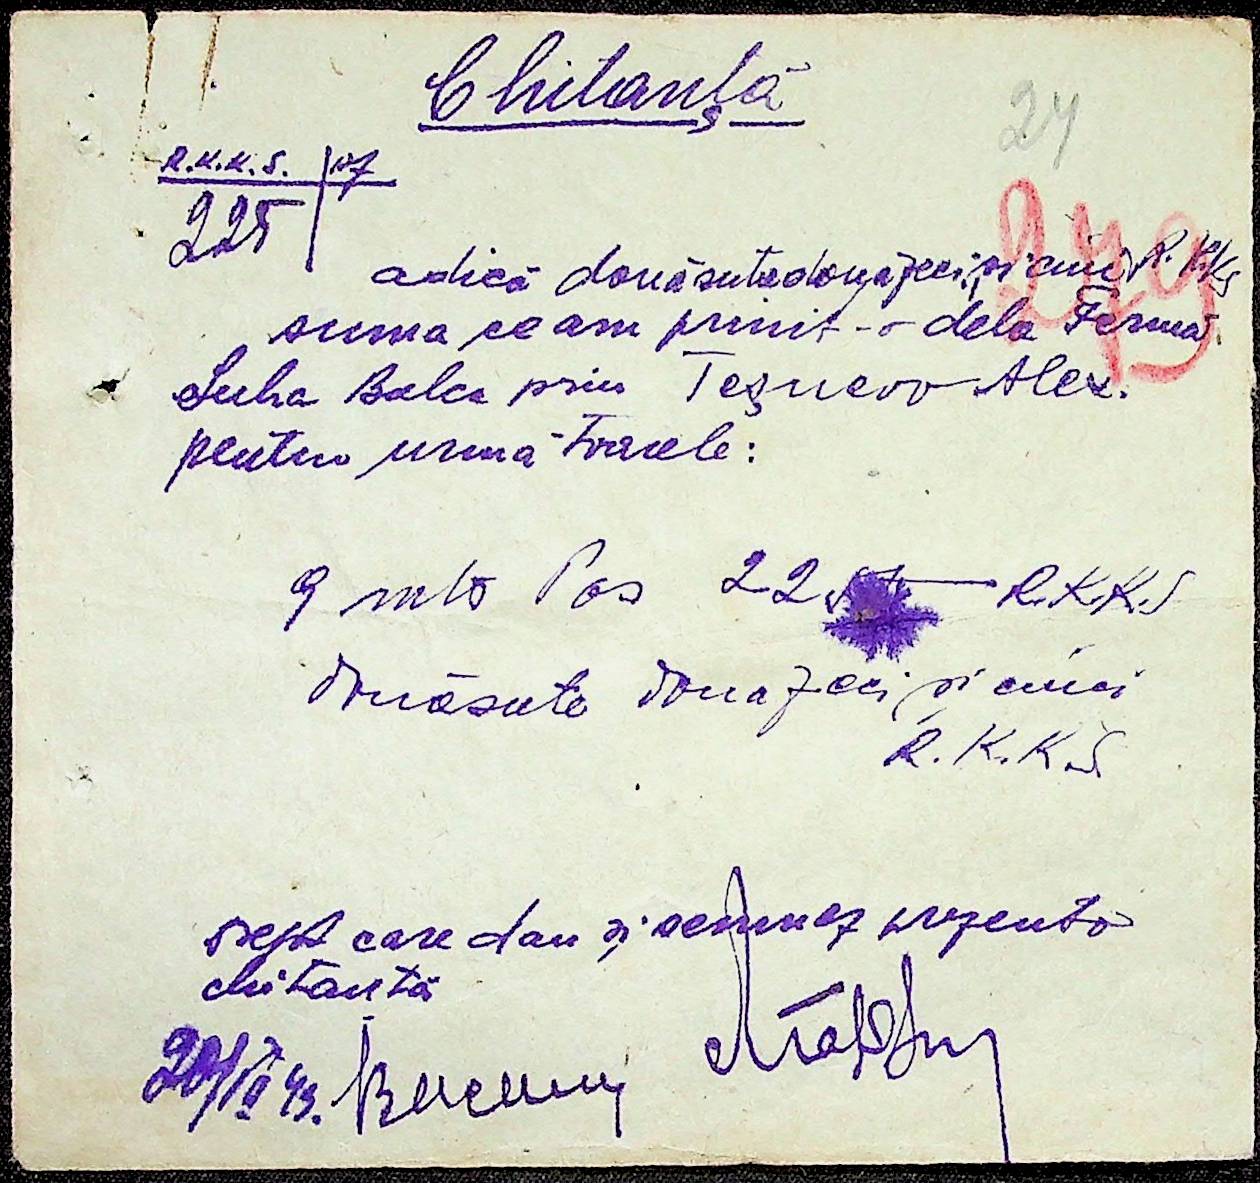 Chitanță
24
R.K.K.S.
225
279
adică douăsutedouăzeci și cinci R.K.K.S
suma ce am primit-o dela Ferma
Suha Balca prin Teșnevo Alex.
pentru următoarele:
9 mto Pos 22 R.K.K.S
douăsute douazeci și cinci
R.K.K.S
drept care dau și semnez prezenta
chitanță